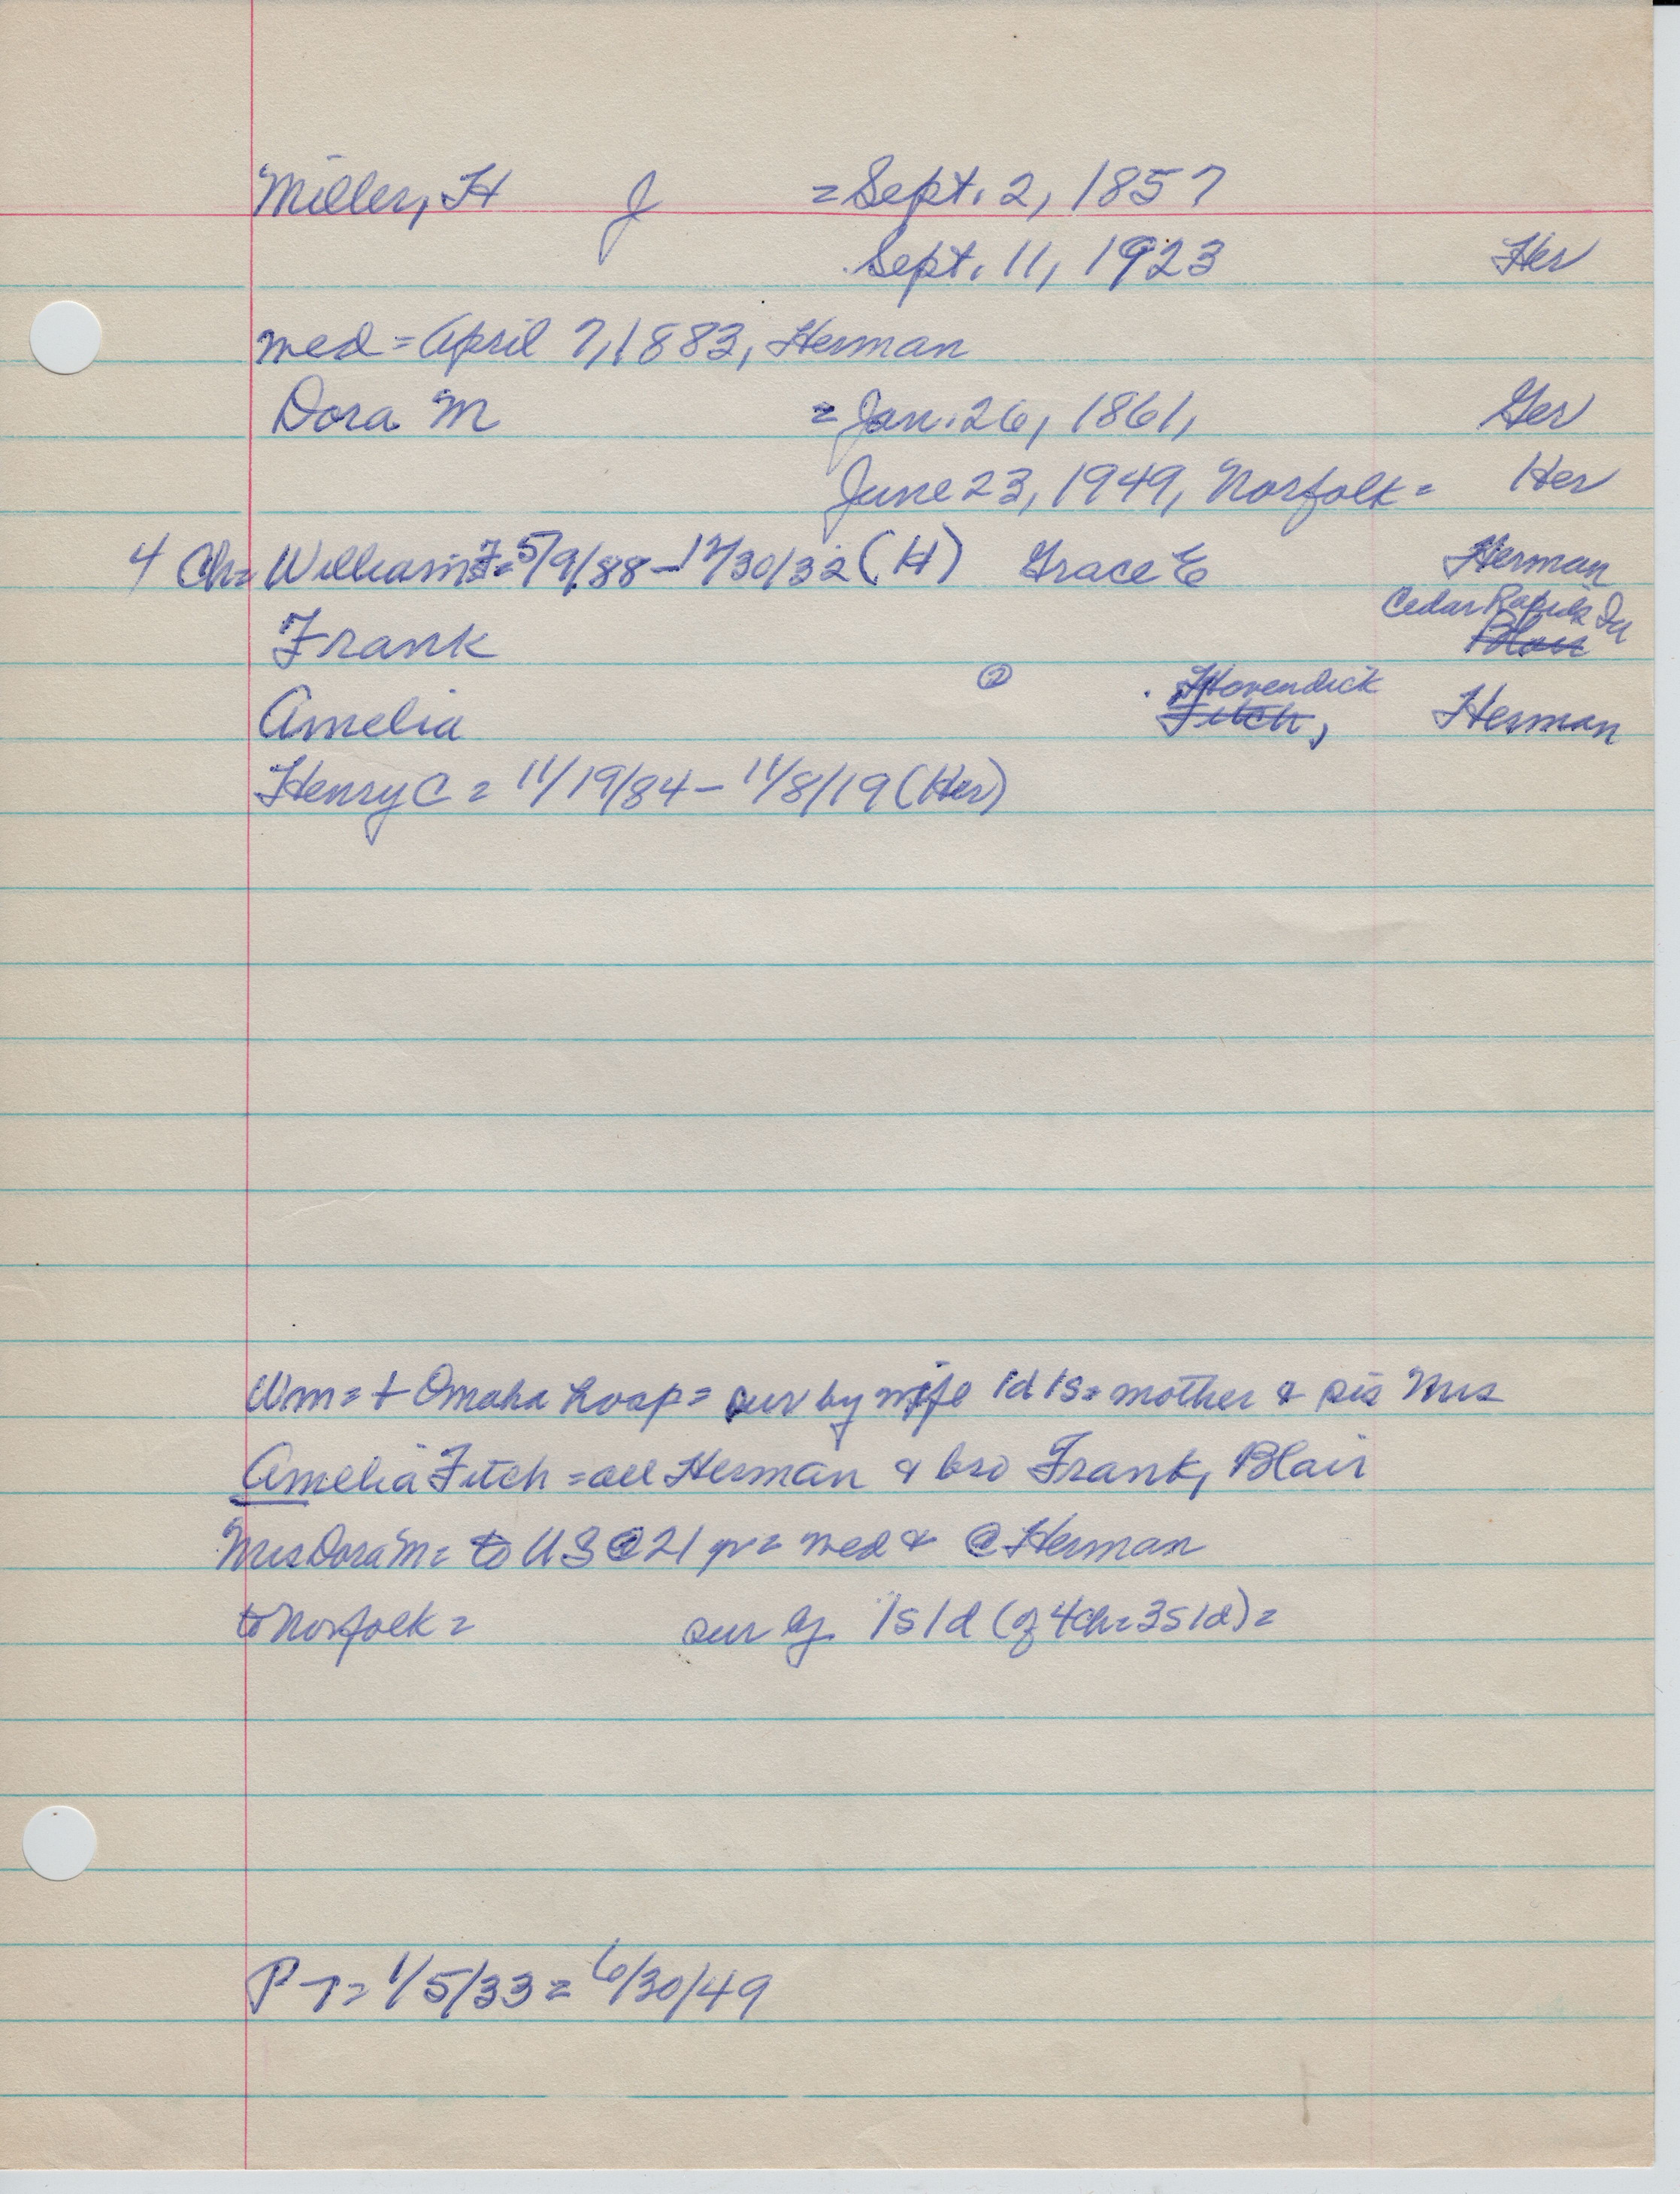 Miller, H J = Sept. 2, 1857
Sept. 11, 1923 Her
med = April 7, 1883, Herman
Dora M = Jan. 26, 1861, Ger
June 23, 1949, Norfolk = Her
4 Ch = William F = 5/9/88 - 12/30/32 (H) Grace E Herman
Cedar Rapids Ia
Frank Blair
② Hovendick
Amelia Fitch, Herman
Henry C = 11/19/84 - 11/8/19 (Her)
Wm = + Omaha hosp = sur by wife 1d 1s = mother & sis Mrs
Amelia Fitch = all Herman & bro Frank, Blair
Mrs Dora M = to US @ 21 yr = med & @ Herman
to Norfolk = sur by 1s 1d (of 4 ch = 3s 1d) =
P T = 1/5/33 = 6/30/49